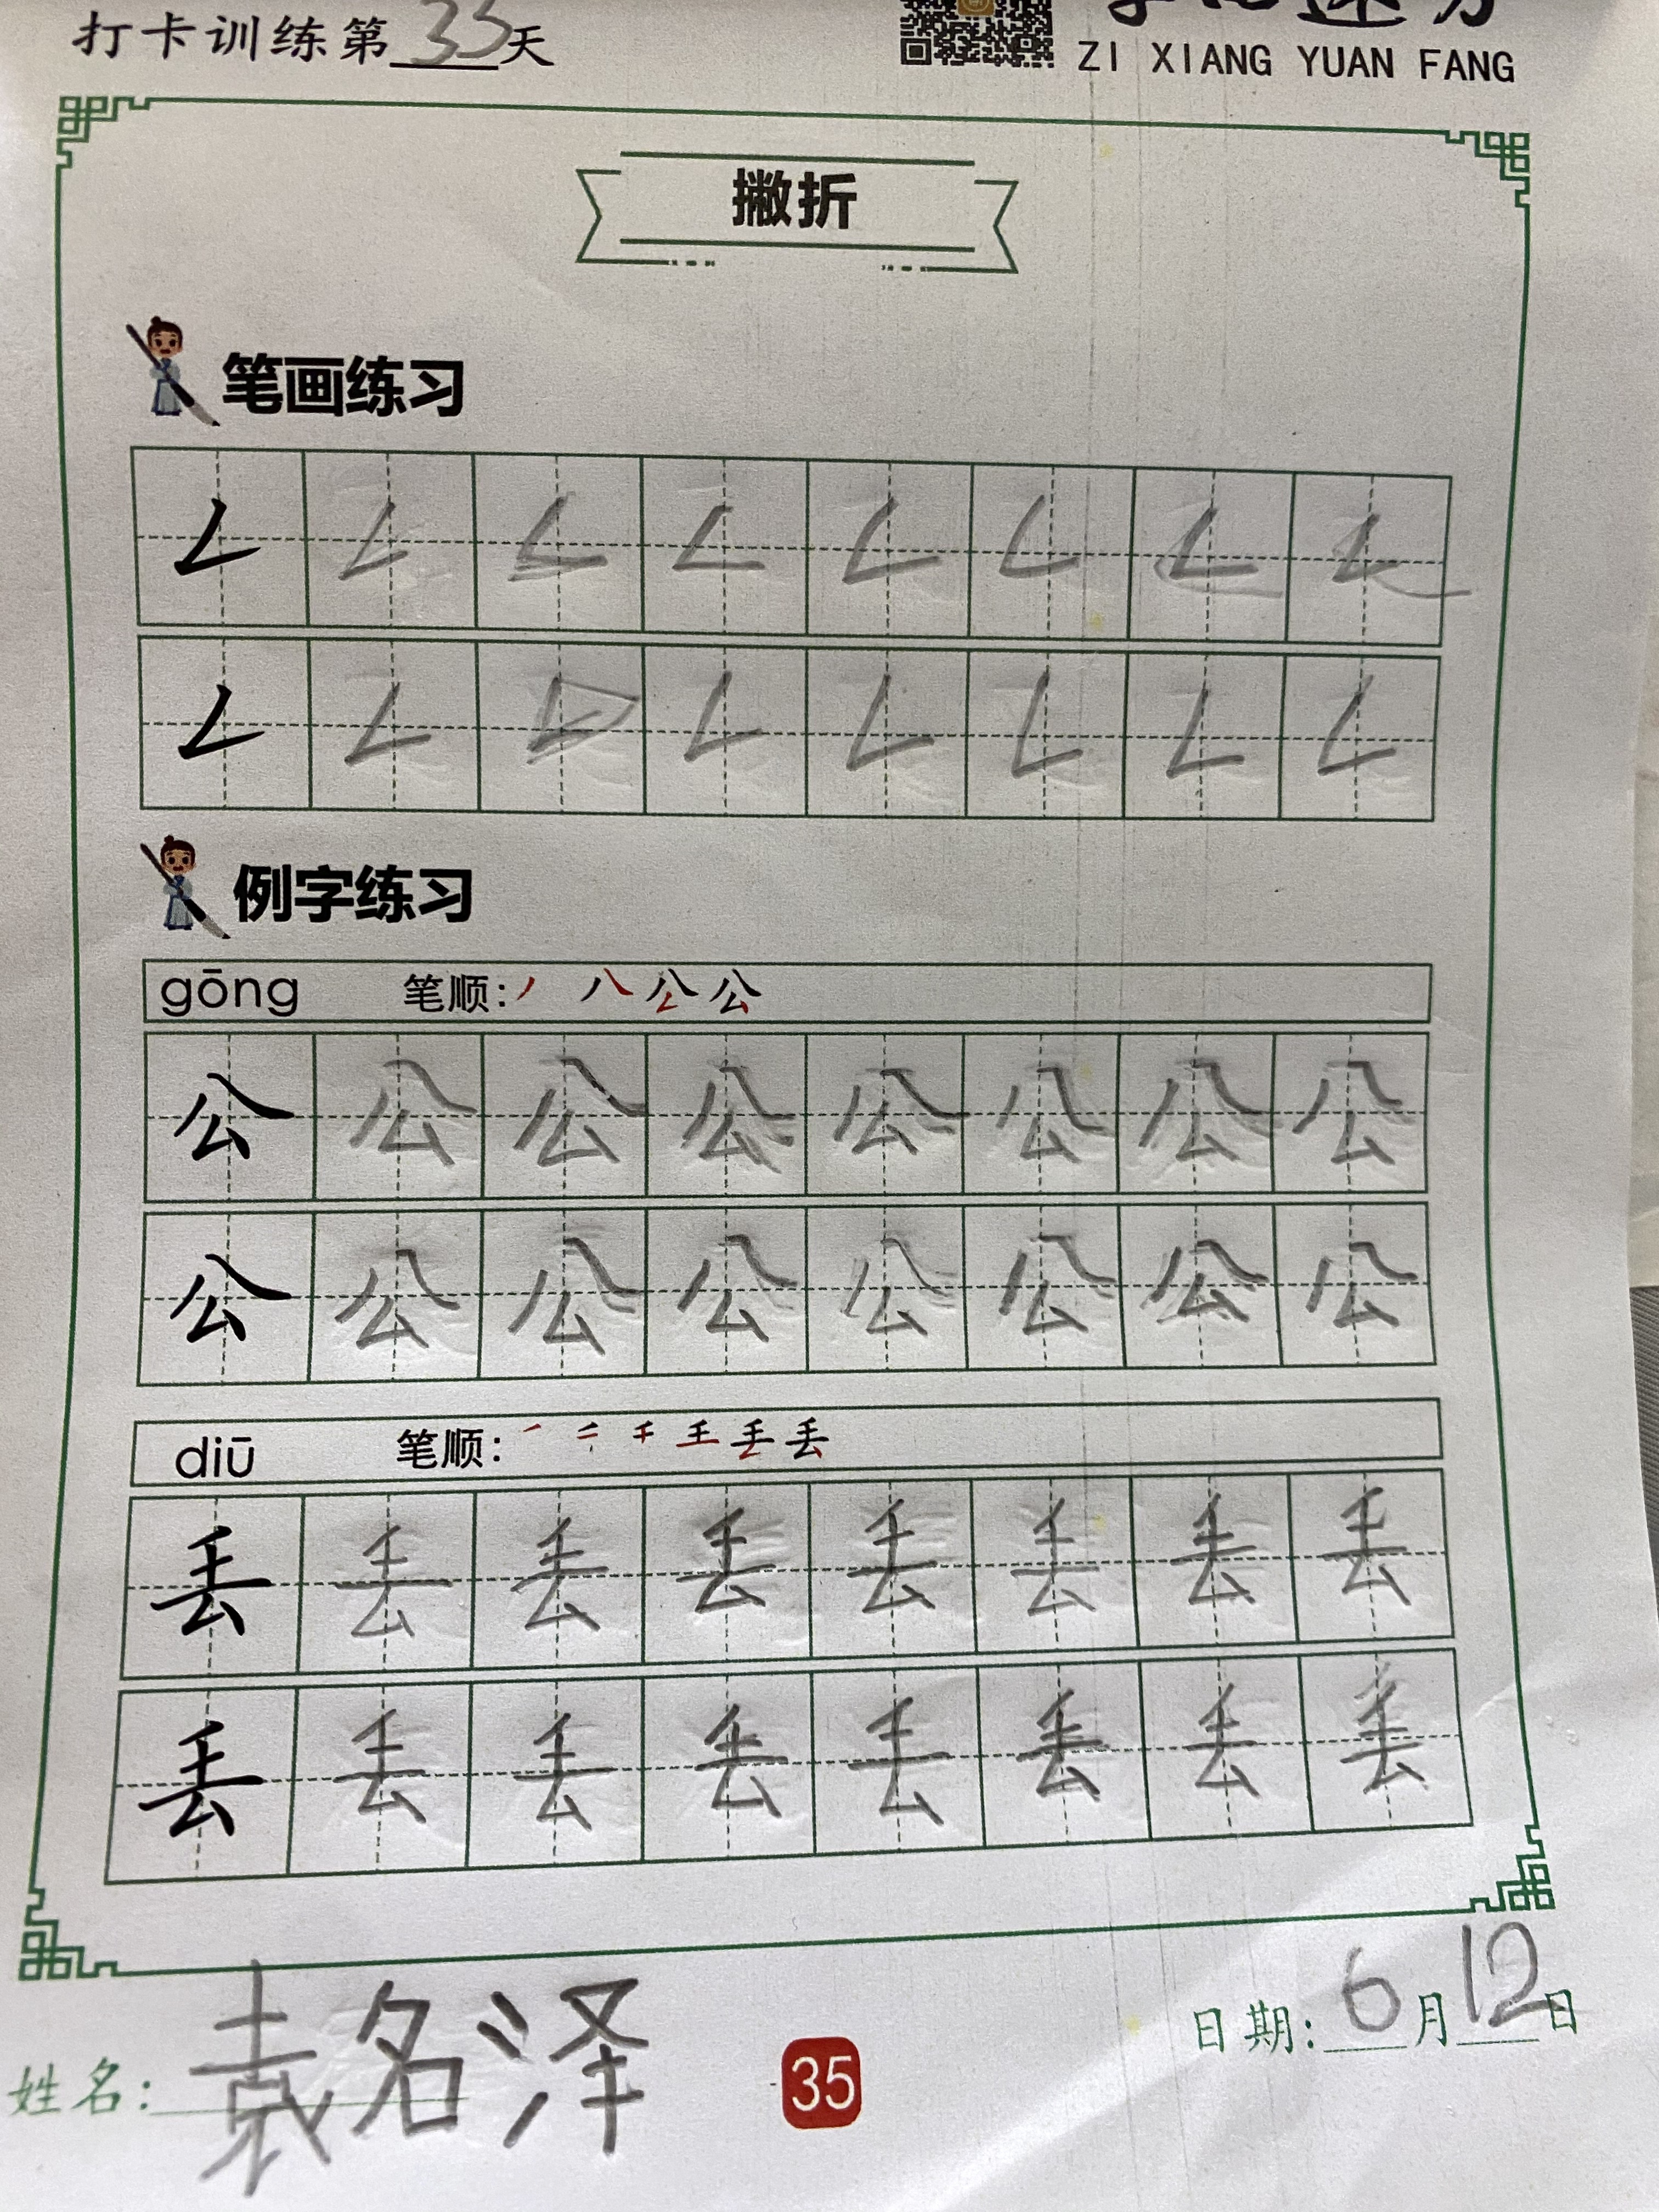 打卡训练第33天
ZI XIANG YUAN FANG
撇折
笔画练习
例字练习
gōng 笔顺: 丿 八 公 公
公 公 公 公 公 公 公 公
公 公 公 公 公 公 公 公
diū 笔顺: 丢 丢
丢 丢 丢 丢 丢 丢 丢 丢
丢 丢 丢 丢 丢 丢 丢 丢
姓名: 袁名泽
35
日期: 6月12日